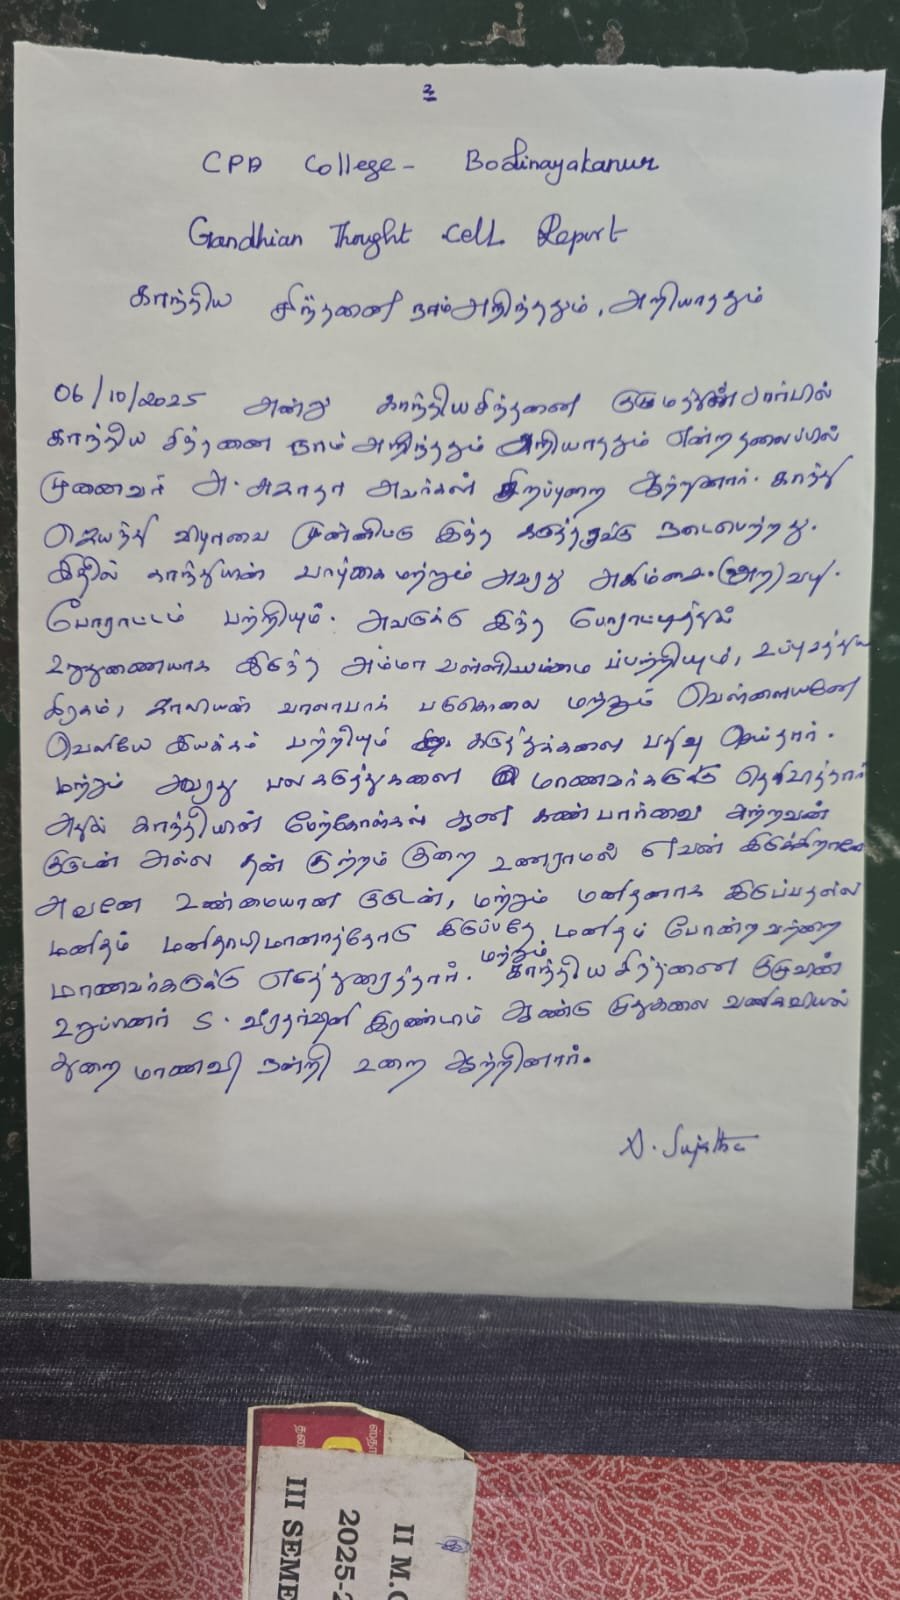 உ
CPA College - Bodinayakanur
Gandhian Thought Cell Report
காந்திய சிந்தனை நாம் அறிந்ததும், அறியாததும்
06/10/2025 அன்று காந்திய சிந்தனை குழுமத்தின் சார்பில்
காந்திய சிந்தனை நாம் அறிந்ததும் அறியாததும் என்ற தலைப்பில்
முனைவர் அ. சுஜாதா அவர்கள் சிறப்புறை ஆற்றுனார். காந்தி
ஜெயந்தி விழாவை முன்னிட்டு இந்த கருத்தரங்கு நடைபெற்றது.
இதில் காந்தியின் வாழ்கை மற்றும் அவரது அகிம்சை (அற) வழி
போராட்டம் பற்றியும். அவருக்கு இந்த போராட்டத்தில்
உறுதுணையாக இருந்த அம்மா வள்ளியம்மை பற்றியும், உப்பு சத்தியா
கிரகம், ஜாலியன் வாலாபாக் படுகொலை மற்றும் வெள்ளையனே
வெளியே இயக்கம் பற்றியும் கருத்துக்களை பதிவு செய்தார்.
மற்றும் அவரது பல கருத்துகளை மாணவர்களுக்கு தெரிவித்தார்
அதில் காந்தியின் மேற்கோள்கள் ஆன கண் பார்வை அற்றவன்
குருடன் அல்ல தன் குற்றம் குறை உணராமல் எவன் இருக்கிறானோ
அவனே உண்மையான குருடன், மற்றும் மனிதனாக இருப்பதல்ல
மனிதம் மனிதாபிமானத்தோடு இருப்பதே மனிதம் போன்றவற்றை
மாணவர்களுக்கு எடுத்துரைத்தார். மற்றும் காந்திய சிந்தனை குழுவின்
உறுப்பினர் S. வீரதர்ஷினி இரண்டாம் ஆண்டு முதுகலை வணிகவியல்
துறை மாணவி நன்றி உறை ஆற்றினார்.
A. Sujatha
II M.C
2025-2
III SEME